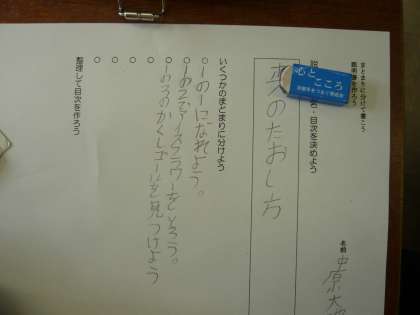 まとまりに分けて書こう
説明書を作ろう
名前
中原大
説
名・目次を決めよう
心と
こころ
のたおし方
いくつかのまとまりに分けよう
1の1になれよう。
1の3でアイスフラワーをとろう。
1の3のかくしゴールを見つけよう
整理して目次を作ろう